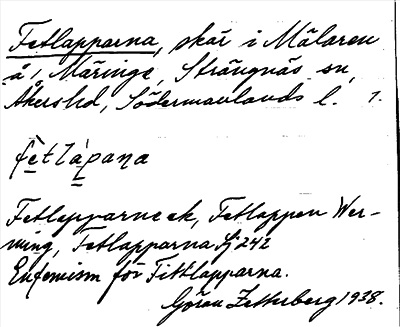 Fetlapparna, skär i Mälaren
å, Märinge, Strängnäs sn,
Åkers hd, Södermanlands l. 1.
fètlápana
Fetlepparne ek, Fetlappen Wer-
ming, Fetlapparna Sj 242
Eufemism för Fittlapparna.
Göran Zetterberg 1938.